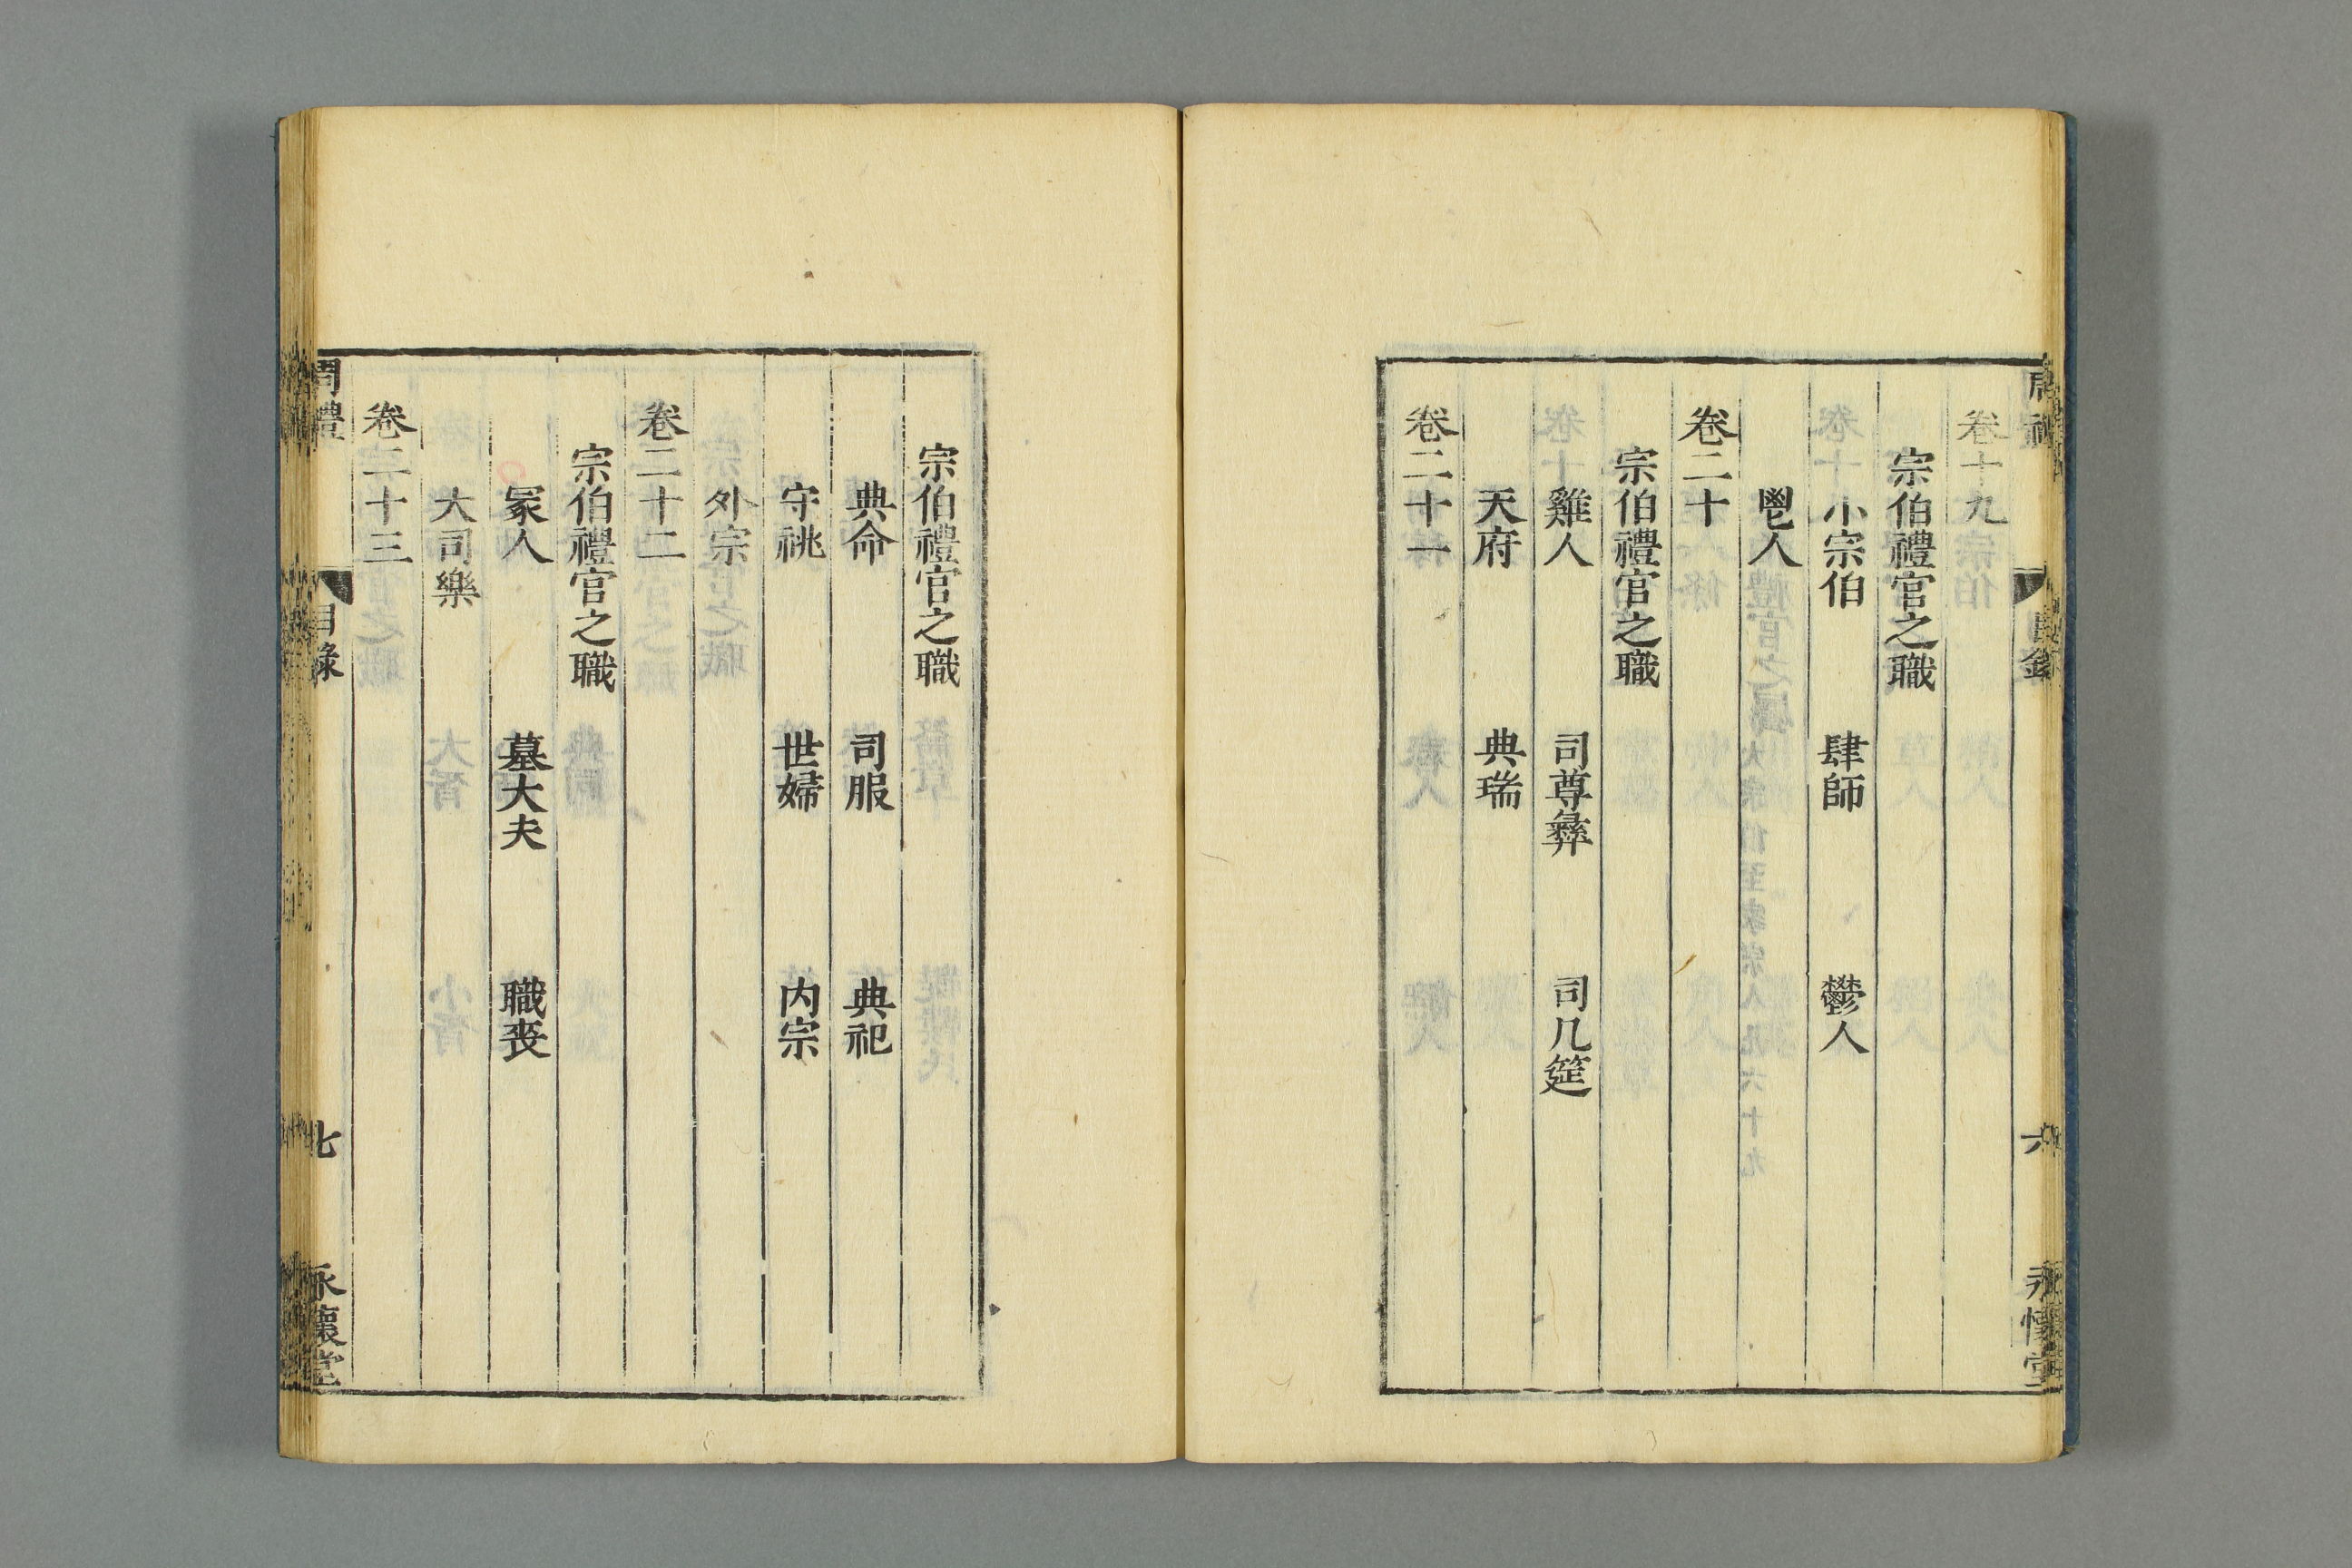 周禮
目錄
六
永懷堂
卷十九
宗伯禮官之職
小宗伯 肆師 鬱人
鬯人
卷二十
宗伯禮官之職
雞人 司尊彝 司几筵
天府 典瑞
卷二十一
宗伯禮官之職
典命 司服 典祀
守祧 世婦 内宗
外宗
卷二十二
宗伯禮官之職
冢人 墓大夫 職喪
大司樂
卷二十三
周禮
目錄
七
永懷堂